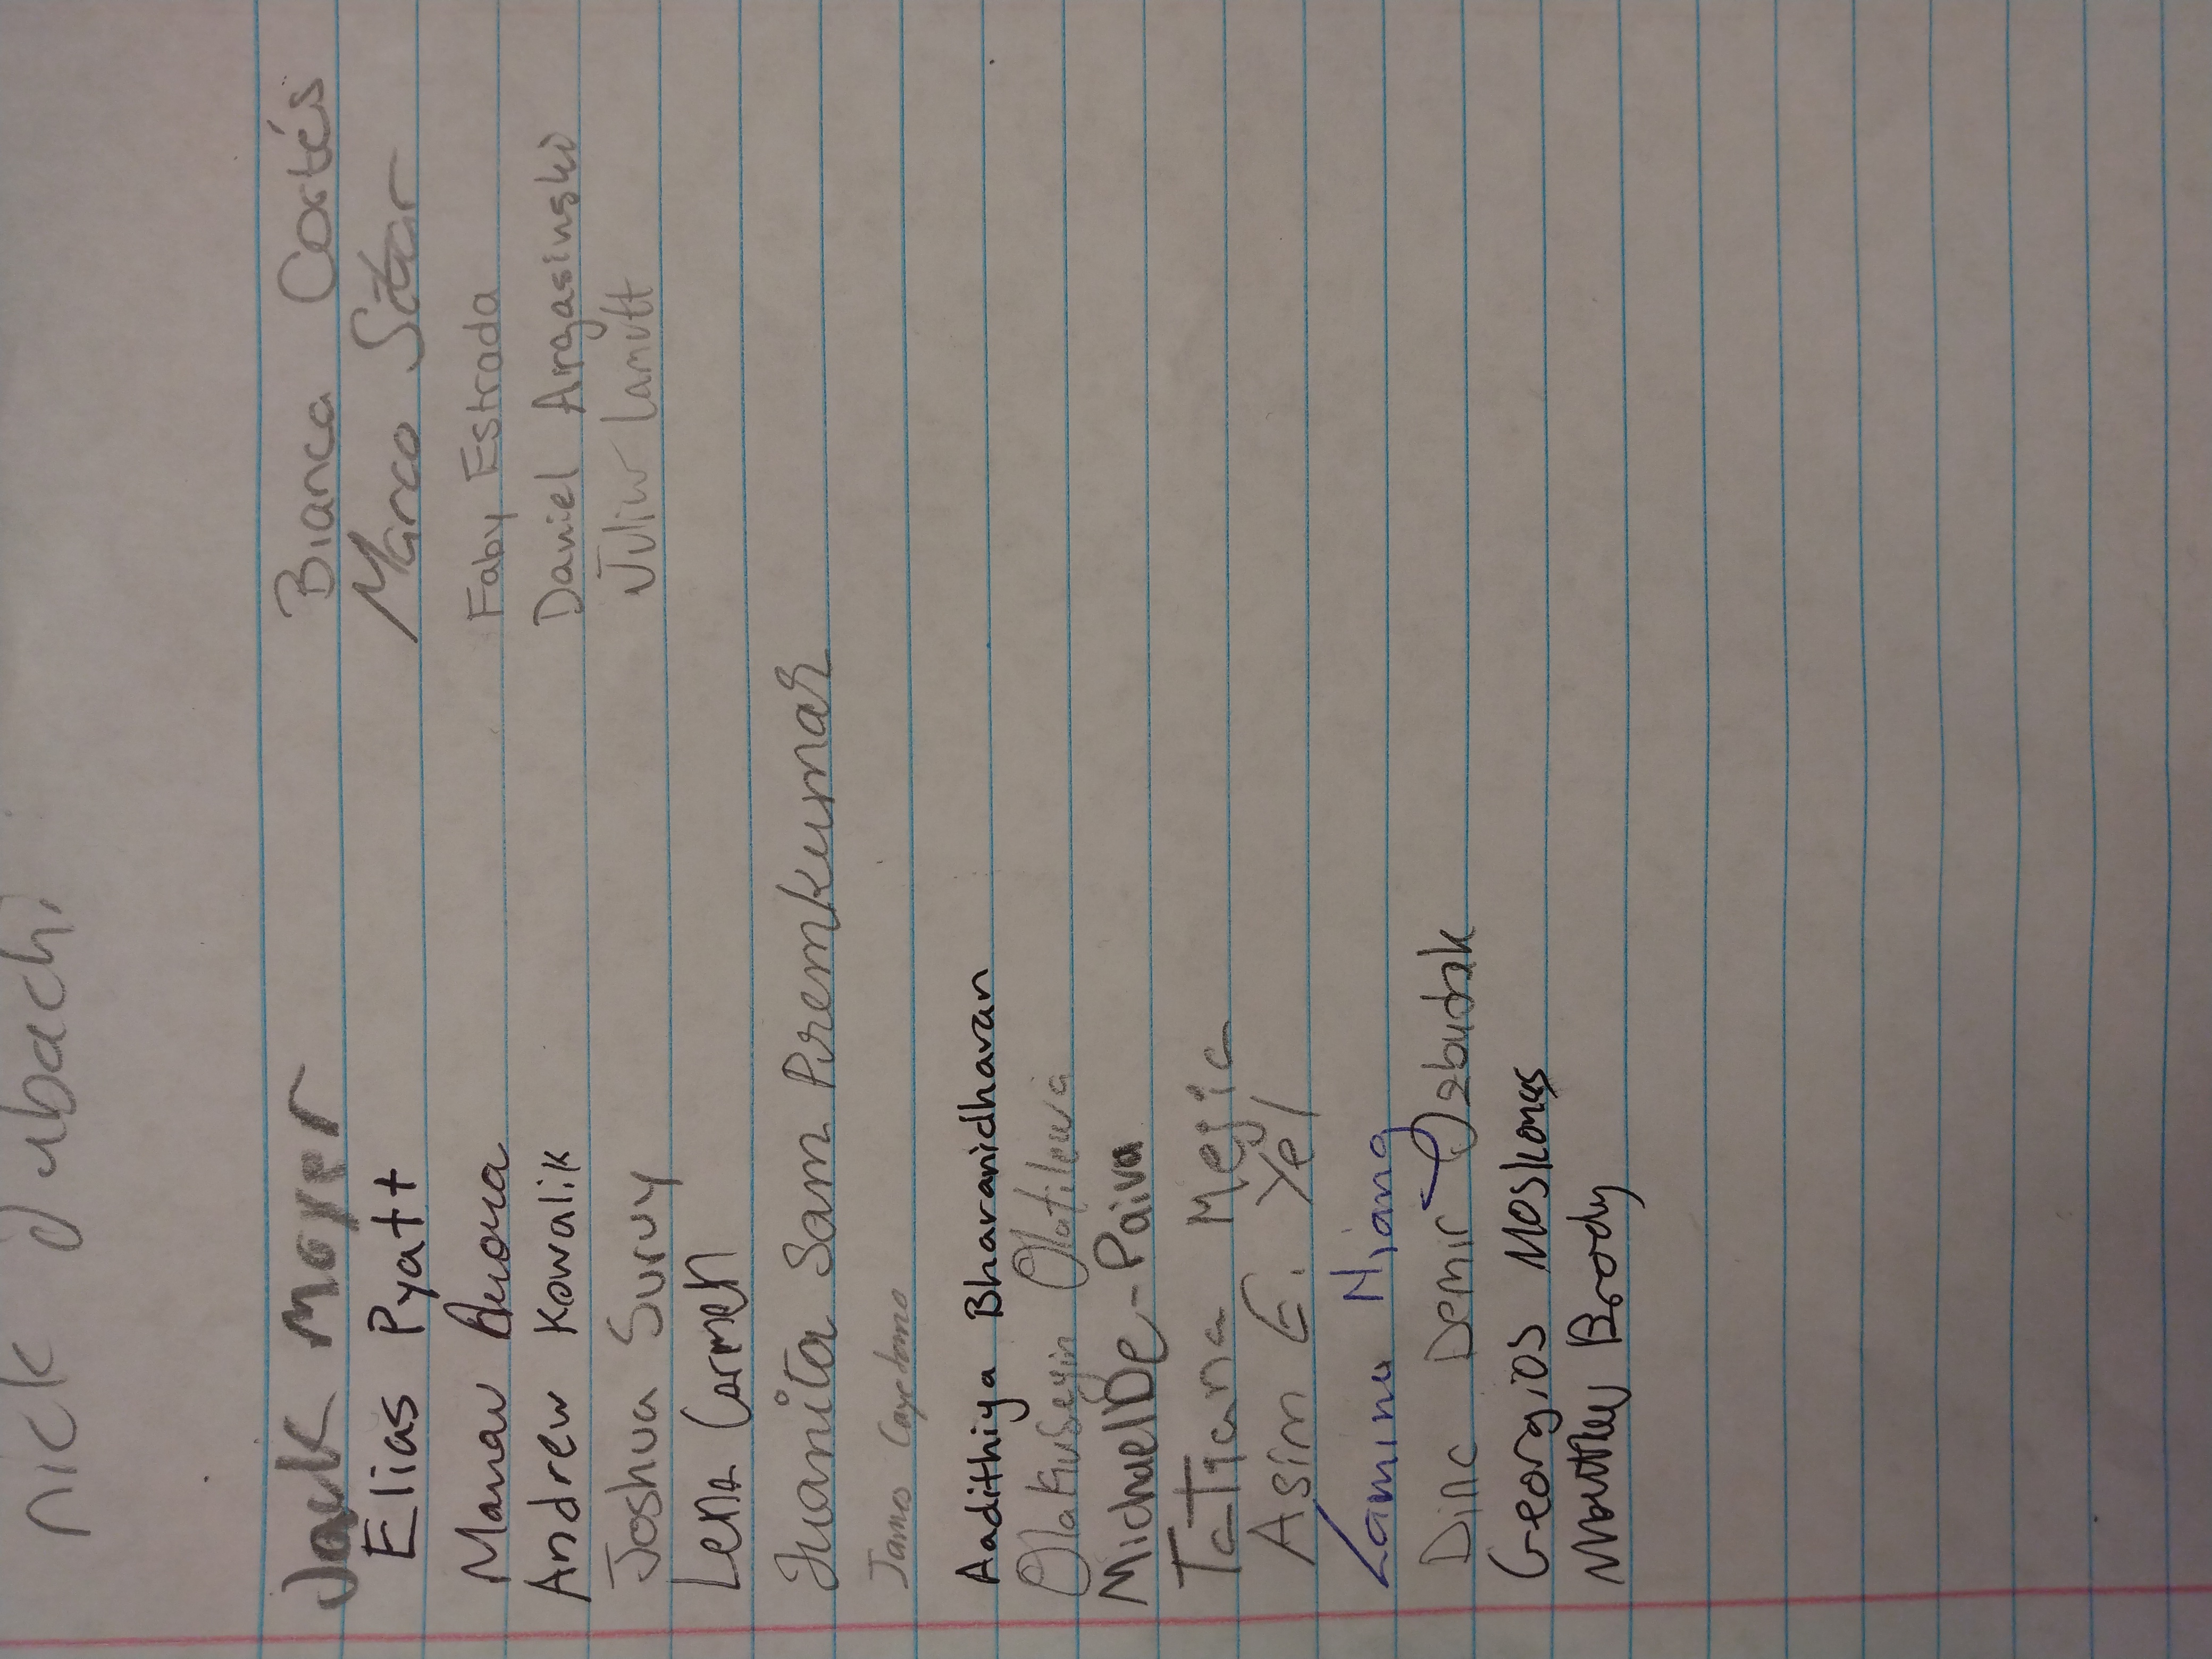 nick dubachi
Jack Moyer
Elias Pyatt
Manav Arora
Andrew Kowalik
Joshua Suruy
Lena Carmen
Juanita Sam Premkumar
James Cayetano
Aadithiya Bharanidharan
Olakusegin Olatilewa
Michael De-Paiva
Tatiana Mejia
Asim E. Yel
Lamine Niang
Dinc Demir Ozbudak
Georgios Moskonas
Matthew Brody
Bianca Cortés
Marco
Faby Estrada
Daniel Argasinski
Lamutt